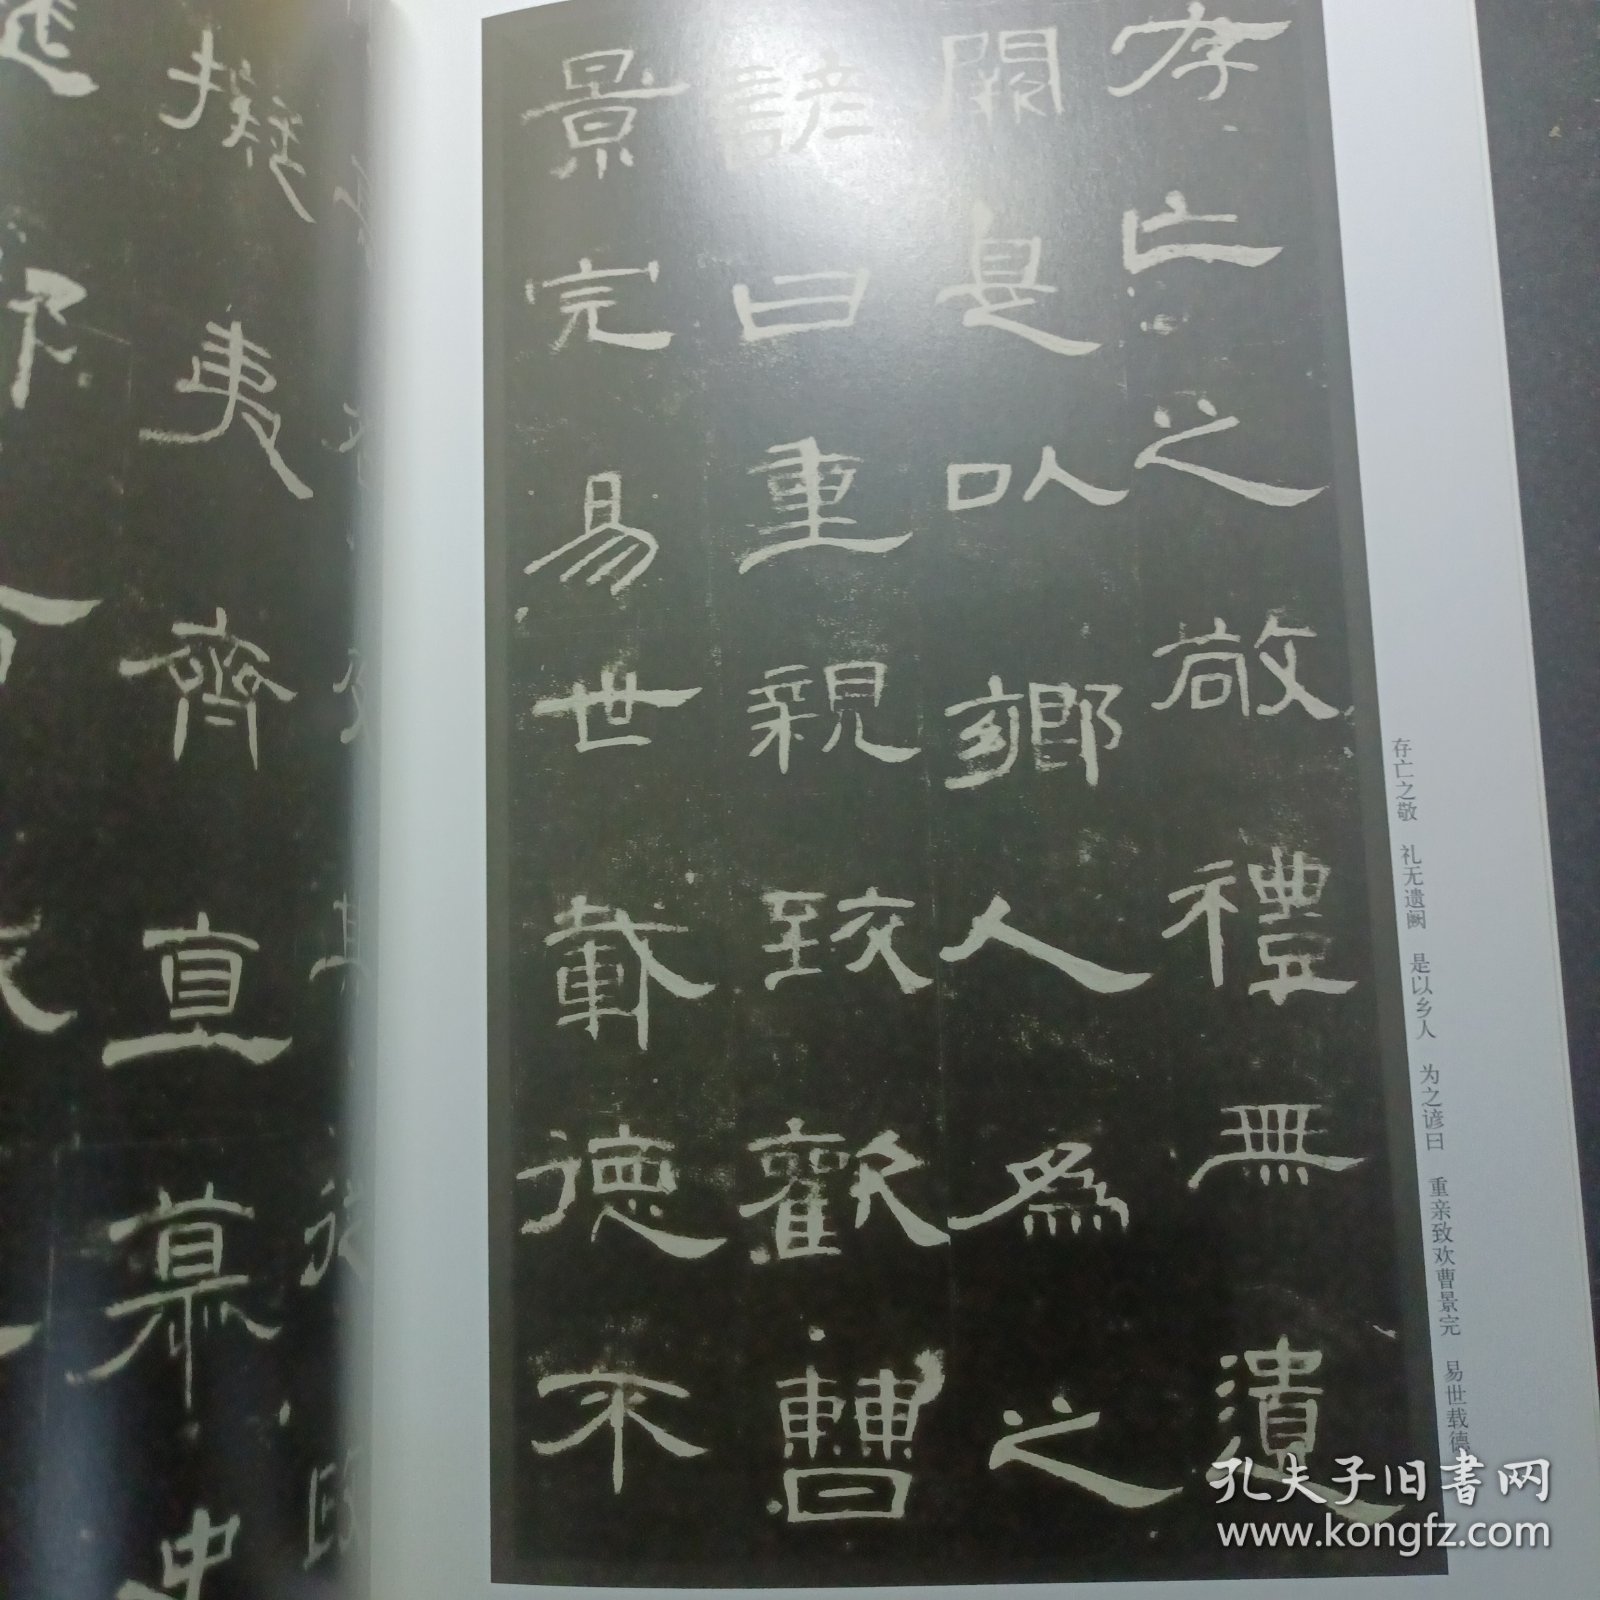 存亡之敬禮無遺
闕是以鄉人為之
諺曰重親致歡曹
景完易世載德不
存亡之敬 礼无遗阙 是以乡人 为之谚曰 重亲致欢曹景完 易世载德
擬夷齊直慕史
孔夫子旧书网
www.kongfz.com